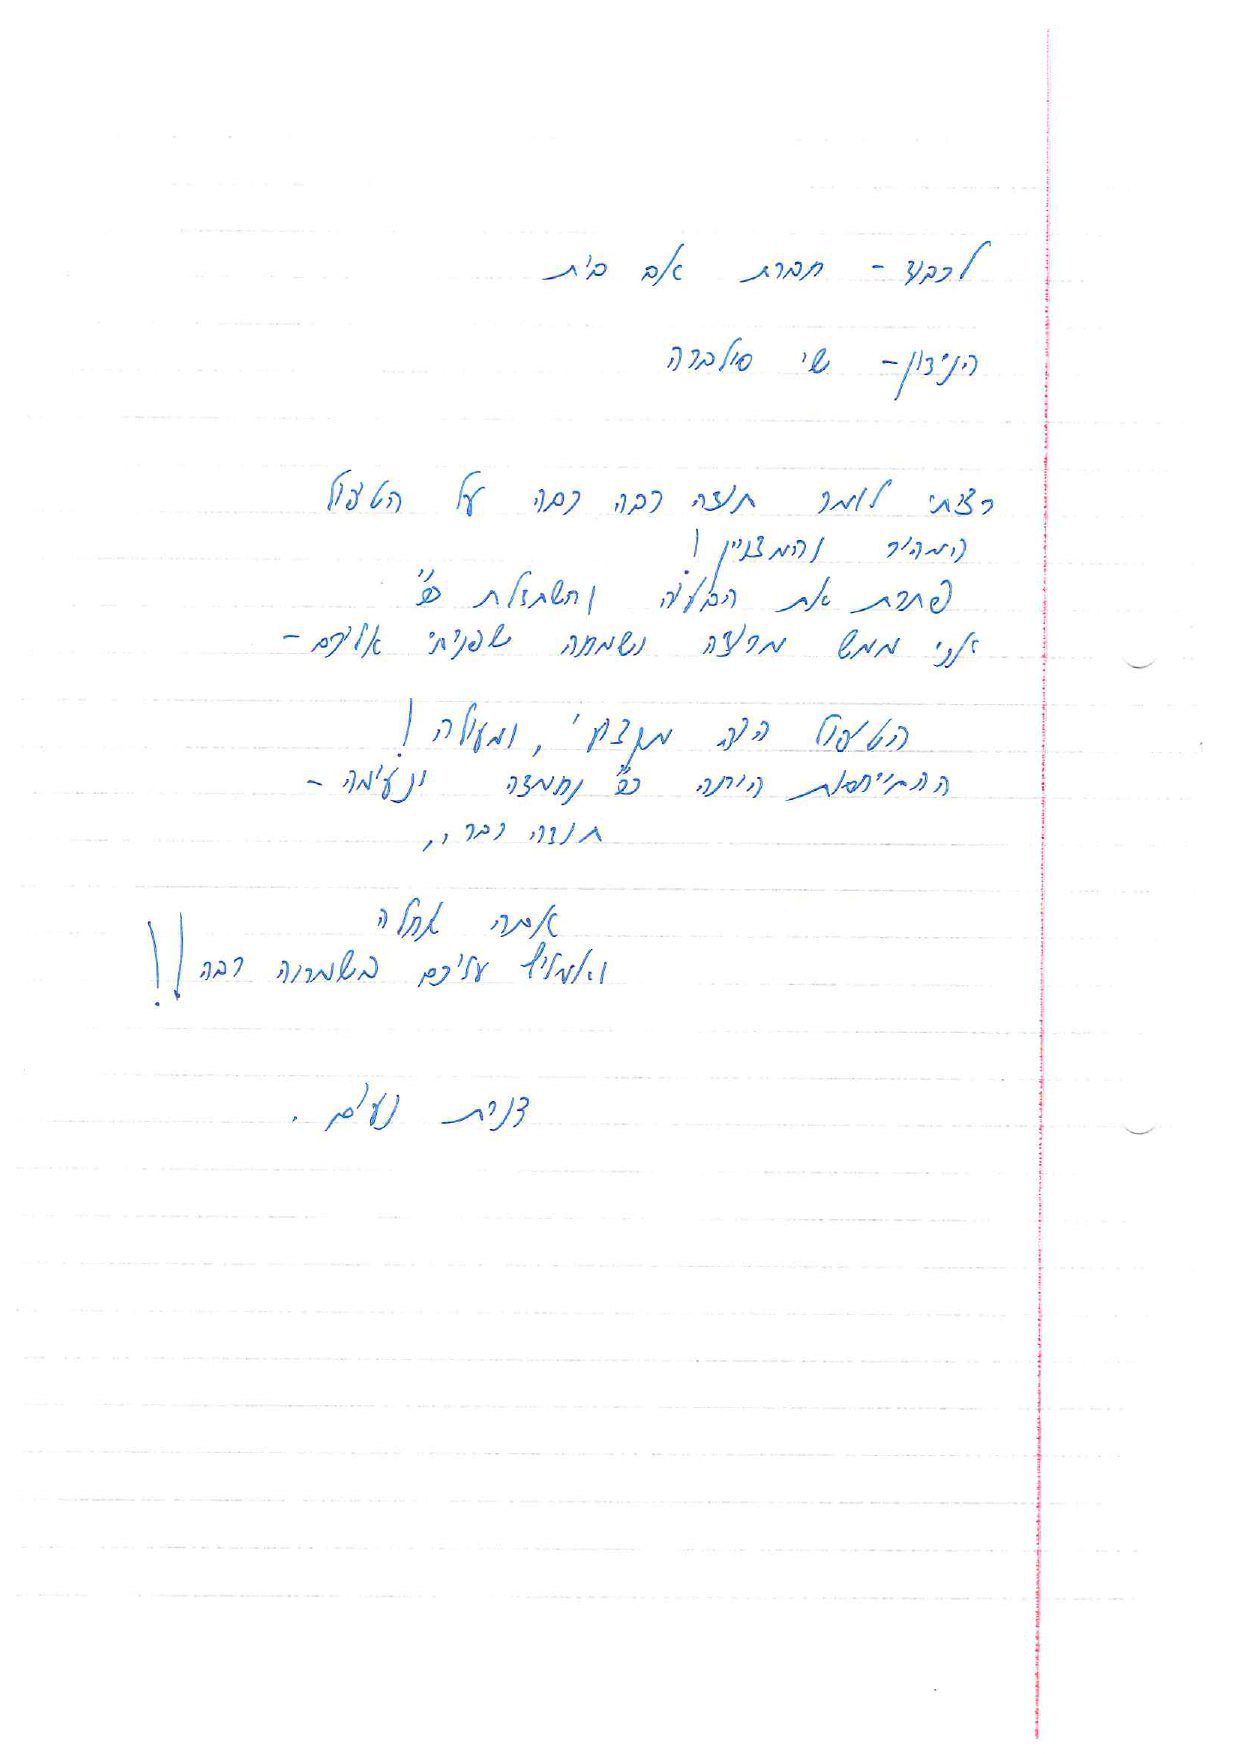 לכבוד - חברת אם בית
הנידון - שי סילברה
רציתי לומר תודה רבה רבה על הטיפול
המהיר והמצויין!
פתרת את הבעיה והשתדלת כ"כ
אני ממש מרוצה ושמחה שפניתי אליכם -
הטיפול היה מקצועי, ומעולה!
ההתייחסות היתה כ"כ נחמדה ונעימה -
תודה רבה,,
אתה אחלה
ואמליץ עליכם בשמחה רבה!!
דורית נעים.